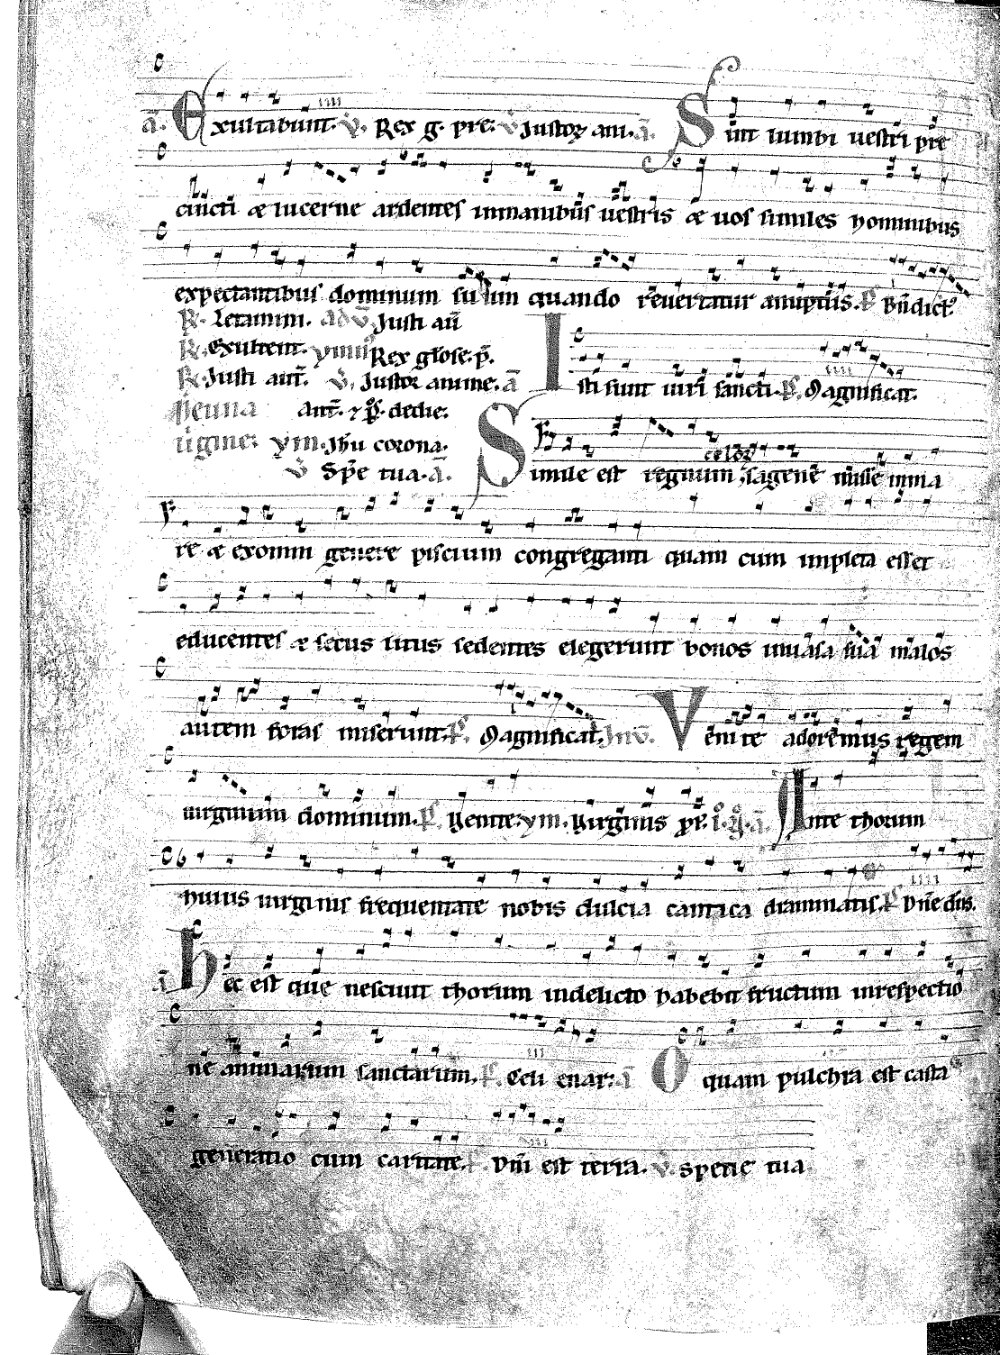 a. Exultabunt. v. Rex g. pre. v. Justoꝝ ani. a. Sint lumbi vestri pre
cincti et lucerne ardentes inmanibus vestris et vos similes hominibus
expectantibus dominum suum quando revertatur anuptiis. ps. Bn̄dict9
R. Letamini. ad v. Justi aū
R. Exultent. ymus Rex glose. p̄.
R. Justi aut. v. Justor anime. a Isti sunt viri sancti. ps. Magnificat.
ant. ⁊ ps. dedic.
v̄gine. ym. Jhu corona.
v Sp̄e tua. a. Simile est regnum celoꝝ sagene misse inma
re et exomni genere piscium congreganti quam cum impleta esset
educentes et secus litus sedentes elegerunt bonos inuasa sua malos
autem foras miserunt. ps. Magnificat. Inv. Venite adoremus regem
virginum dominum. ps. Venite. ym. Virginis ꝓl. i. a. Ante thorum
huius virginis frequentate nobis dulcia cantica dramatis. ps. Dn̄e dn̄s.
a Hec est que nescivit thorum indelicto habebit fructum inrespectio
ne animarum sanctarum. ps. Celi enar. a O quam pulchra est casta
generatio cum caritate. ps. Dn̄i est terra. v. Specie tua